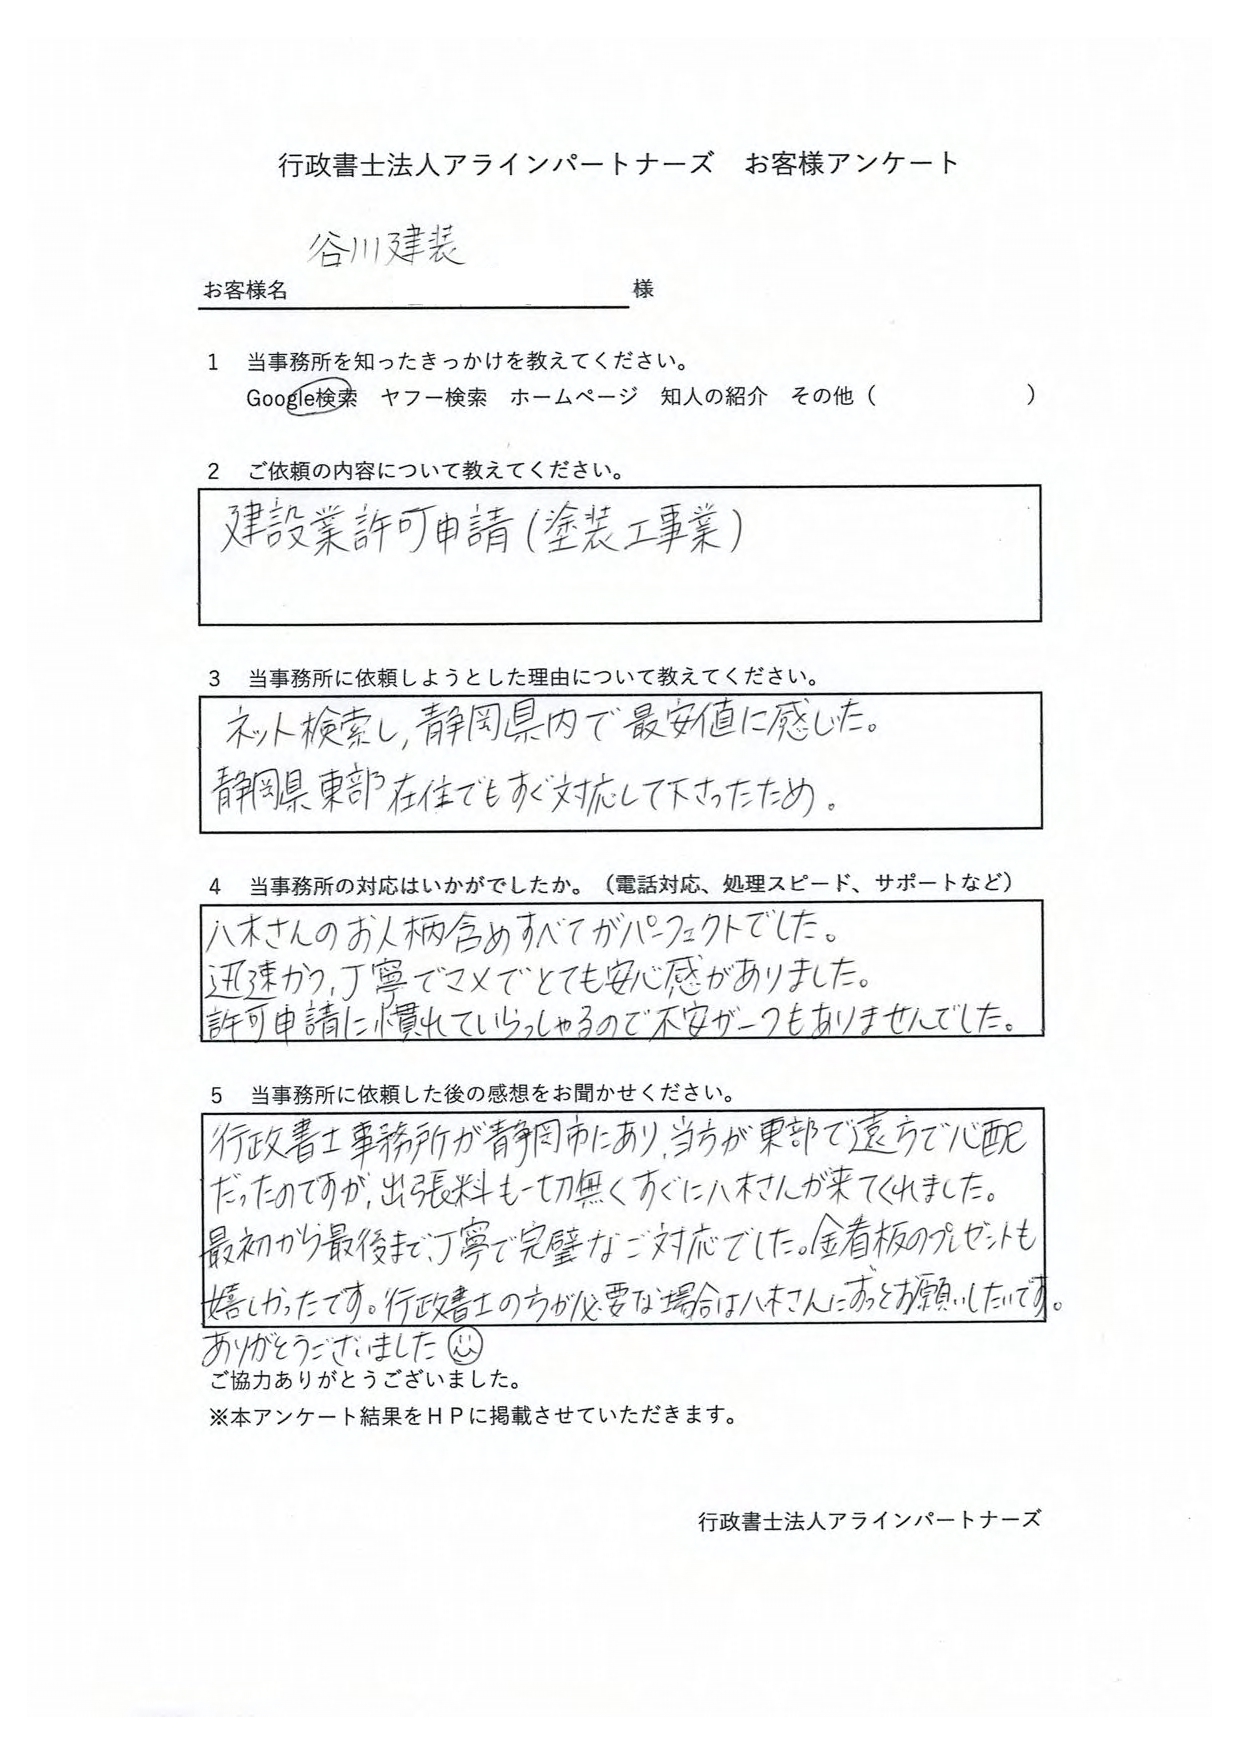 行政書士法人アラインパートナーズ　お客様アンケート
谷川建装
お客様名　様
1　当事務所を知ったきっかけを教えてください。
Google検索　ヤフー検索　ホームページ　知人の紹介　その他（　　　　　　　）
2　ご依頼の内容について教えてください。
建設業許可申請(塗装工事業)
3　当事務所に依頼しようとした理由について教えてください。
ネット検索し,静岡県内で最安値に感じた。
静岡県東部在住でもすぐ対応して下さったため。
4　当事務所の対応はいかがでしたか。（電話対応、処理スピード、サポートなど）
八木さんのお人柄含めすべてがパーフェクトでした。
迅速かつ,丁寧でマメでとても安心感がありました。
許可申請に慣れていらっしゃるので不安が一つもありませんでした。
5　当事務所に依頼した後の感想をお聞かせください。
行政書士事務所が静岡市にあり,当方が東部で遠方で心配
だったのですが,出張料も一切無くすぐに八木さんが来てくれました。
最初から最後まで、丁寧で完璧なご対応でした。金看板のプレゼントも
嬉しかったです。行政書士の方が必要な場合は八木さんにずっとお願いしたいです。
ありがとうございました
ご協力ありがとうございました。
※本アンケート結果をＨＰに掲載させていただきます。
行政書士法人アラインパートナーズ